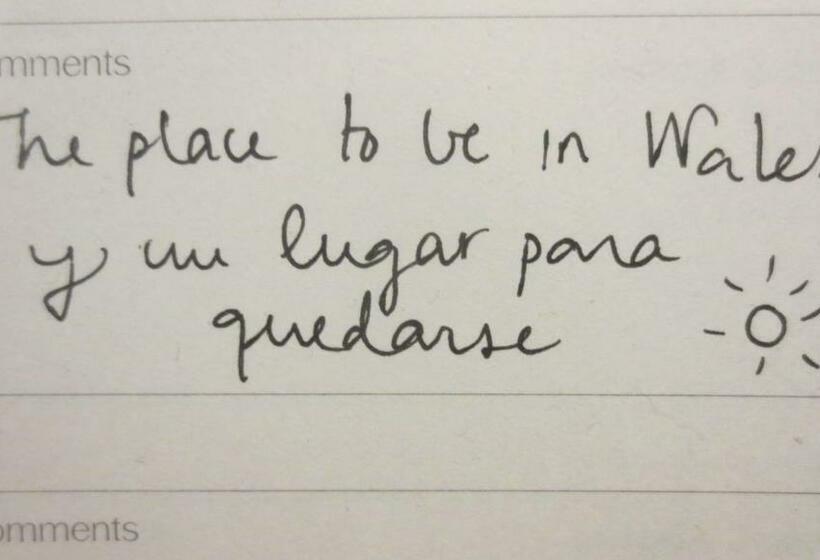 mments
The place to be in Wales
y un lugar para
quedarse
omments